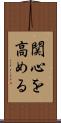 関心を
高める